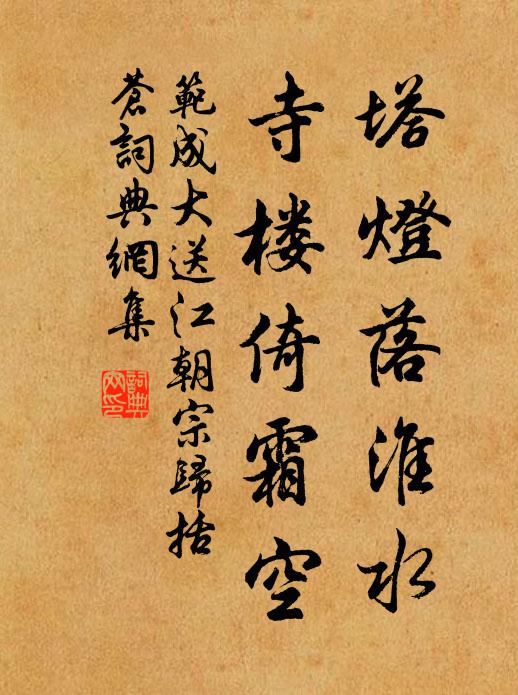 塔燈落淮水
寺楼倚霜空
範成大送江朝宗歸括
蒼詞典網集
詞典
网印